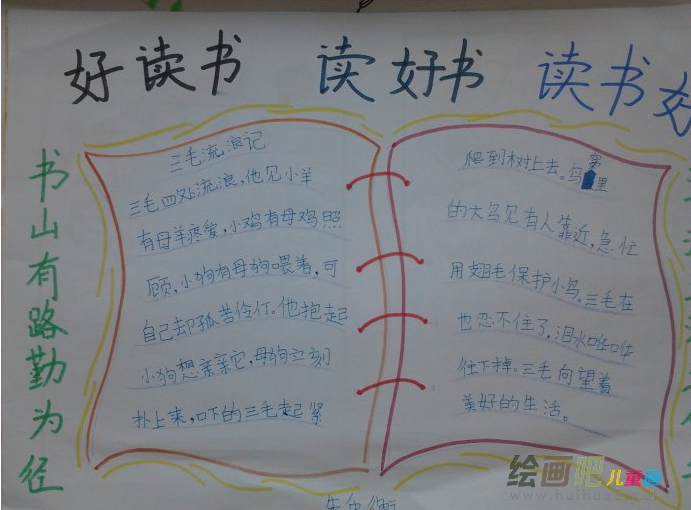 好读书 读好书 读书好
书山有路勤为径
三毛流浪记
三毛四处流浪,他见小羊
有母羊疼爱,小鸡有母鸡照
顾,小狗有母狗喂着,可
自己却孤苦伶仃。他抱起
小狗想亲亲它,母狗立刻
扑上来,吓的三毛赶紧
爬到树上去。鸟窝里
的大鸟见有人靠近,急忙
用翅毛保护小鸟。三毛在
也忍不住了,泪水哗哗
往下掉。三毛向望着
美好的生活。
绘画吧儿童画